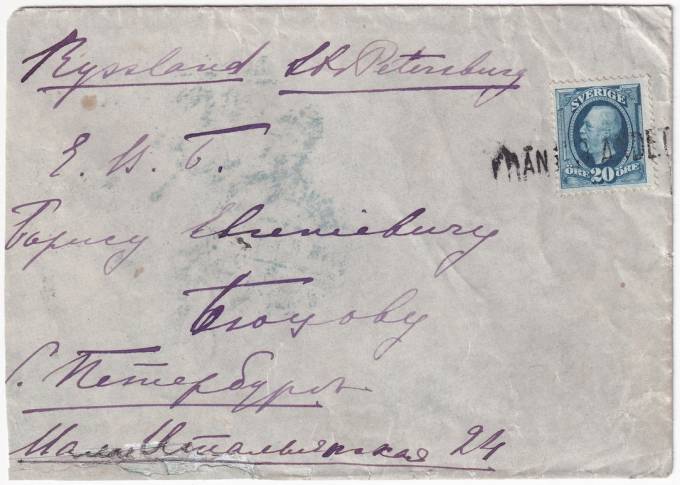 Ryssland St. Petersburg
SVERIGE
FRÅN
ÖRE 20 ÖRE
Е. И. Б.
Борису Евгеніевичу
Бюцову
С. Петербургъ
Мало Итальянская 24